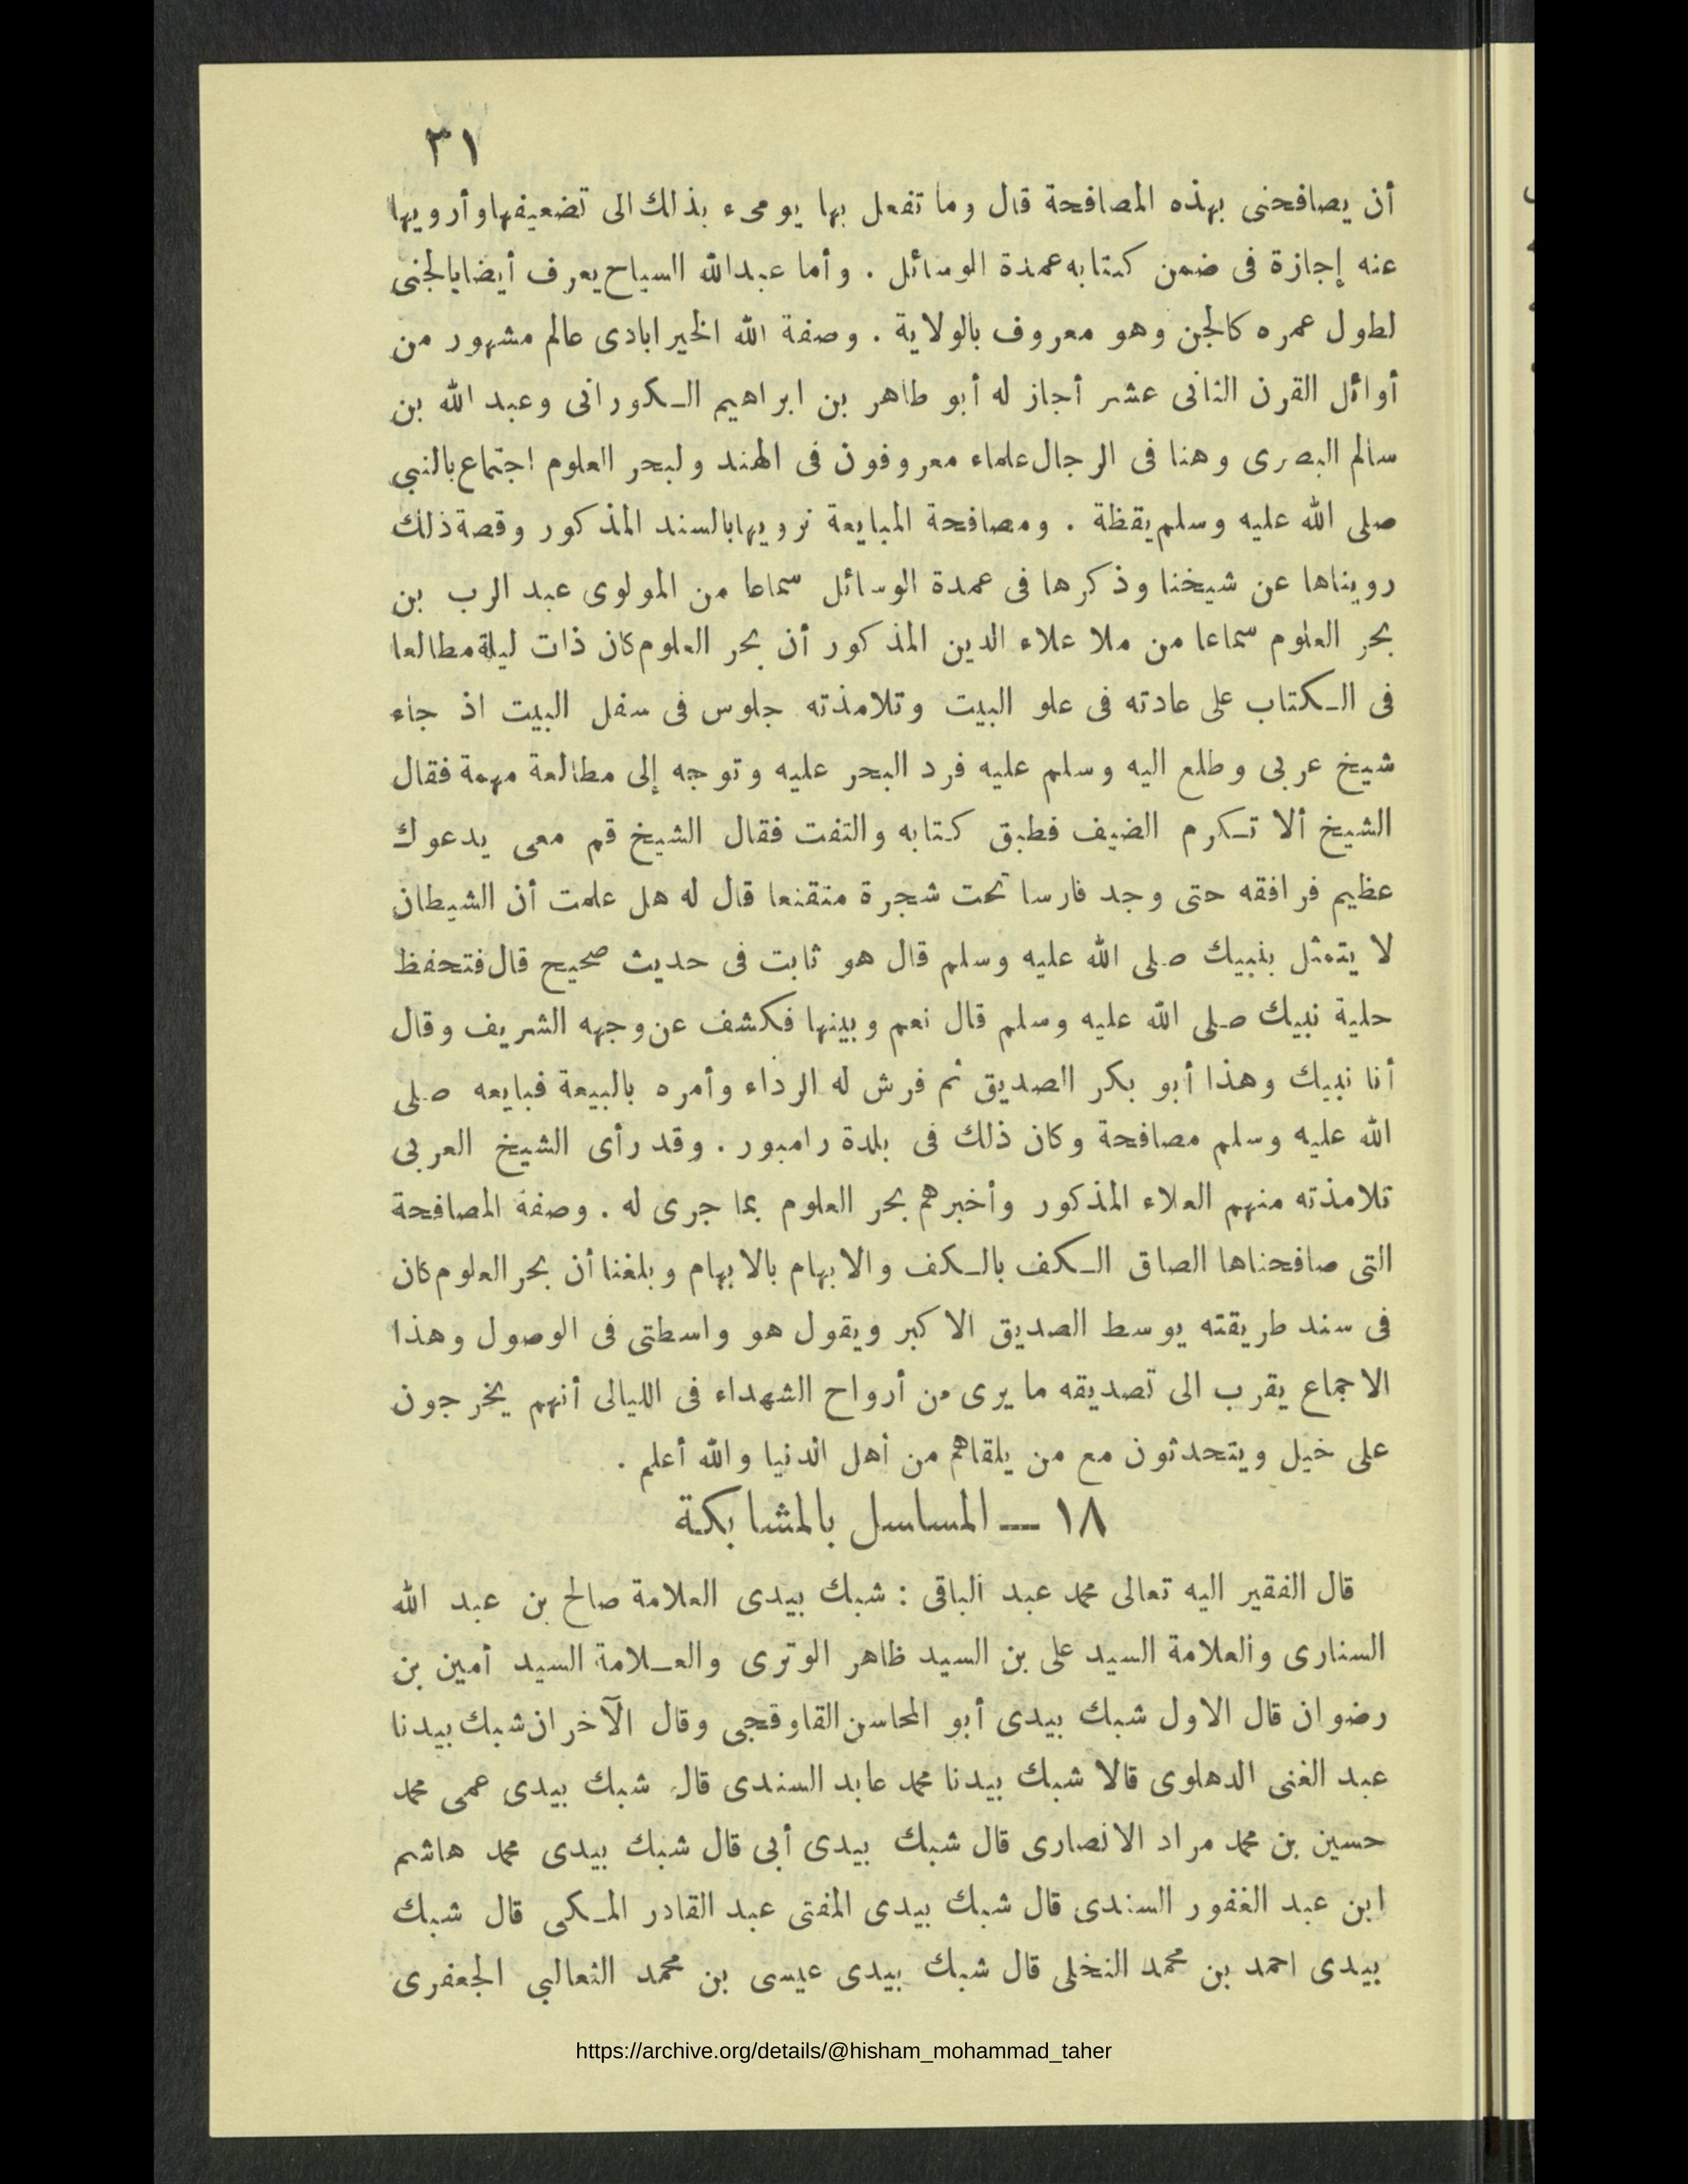 ٣١
أن يصافحنى بهذه المصافحة قال وما تفعل بها يومىء بذلك الى تضعيفها وأرويها
عنه إجازة فى ضمن كتابه عمدة الوسائل . وأما عبدالله السياح يعرف أيضا بالجنى
لطول عمره كالجن وهو معروف بالولاية . وصفة الله الخيرابادى عالم مشهور من
أوائل القرن الثانى عشر أجاز له أبو طاهر بن ابراهيم الكورانى وعبد الله بن
سالم البصرى وهنا فى الرجال علماء معروفون فى الهند ولبحر العلوم اجتماع بالنبي
صلى الله عليه وسلم يقظة . ومصافحة المبايعة نرويها بالسند المذكور وقصة ذلك
رويناها عن شيخنا وذكرها فى عمدة الوسائل سماعا من المولوى عبد الرب بن
بحر العلوم سماعا من ملا علاء الدين المذكور أن بحر العلوم كان ذات ليلة مطالعا
فى الكتاب على عادته فى علو البيت وتلامذته جلوس فى سفل البيت اذ جاء
شيخ عربى وطلع اليه وسلم عليه فرد البحر عليه وتوجه إلى مطالعة مهمة فقال
الشيخ ألا تكرم الضيف فطبق كتابه والتفت فقال الشيخ قم معى يدعوك
عظيم فرافقه حتى وجد فارسا تحت شجرة متقنعا قال له هل علمت أن الشيطان
لا يتمثل بنبيك صلى الله عليه وسلم قال هو ثابت فى حديث صحيح قال فتحفظ
حلية نبيك صلى الله عليه وسلم قال نعم وبينها فكشف عن وجهه الشريف وقال
أنا نبيك وهذا أبو بكر الصديق ثم فرش له الرداء وأمره بالبيعة فبايعه صلى
الله عليه وسلم مصافحة وكان ذلك فى بلدة رامبور . وقد رأى الشيخ العربى
تلامذته منهم العلاء المذكور وأخبرهم بحر العلوم بما جرى له . وصفة المصافحة
التى صافحناها الصاق الكف بالكف والابهام بالابهام وبلغنا أن بحر العلوم كان
فى سند طريقته يوسط الصديق الاكبر ويقول هو واسطتى فى الوصول وهذا
الاجماع يقرب الى تصديقه ما يرى من أرواح الشهداء فى الليالى أنهم يخرجون
على خيل ويتحدثون مع من يلقاهم من أهل الدنيا والله أعلم .
١٨ — المساسل بالمشابكة
قال الفقير اليه تعالى محمد عبد الباقى : شبك بيدى العلامة صالح بن عبد الله
السنارى والعلامة السيد على بن السيد ظاهر الوترى والعلامة السيد أمين بن
رضوان قال الاول شبك بيدى أبو المحاسن القاوقجى وقال الآخران شبك بيدنا
عبد الغنى الدهلوى قالا شبك بيدنا محمد عابد السندى قال شبك بيدى عمى محمد
حسين بن محمد مراد الانصارى قال شبك بيدى أبى قال شبك بيدى محمد هاشم
ابن عبد الغفور السندى قال شبك بيدى المفتى عبد القادر المكى قال شبك
بيدى احمد بن محمد النخلى قال شبك بيدى عيسى بن محمد الثعالبي الجعفرى
https://archive.org/details/@hisham_mohammad_taher